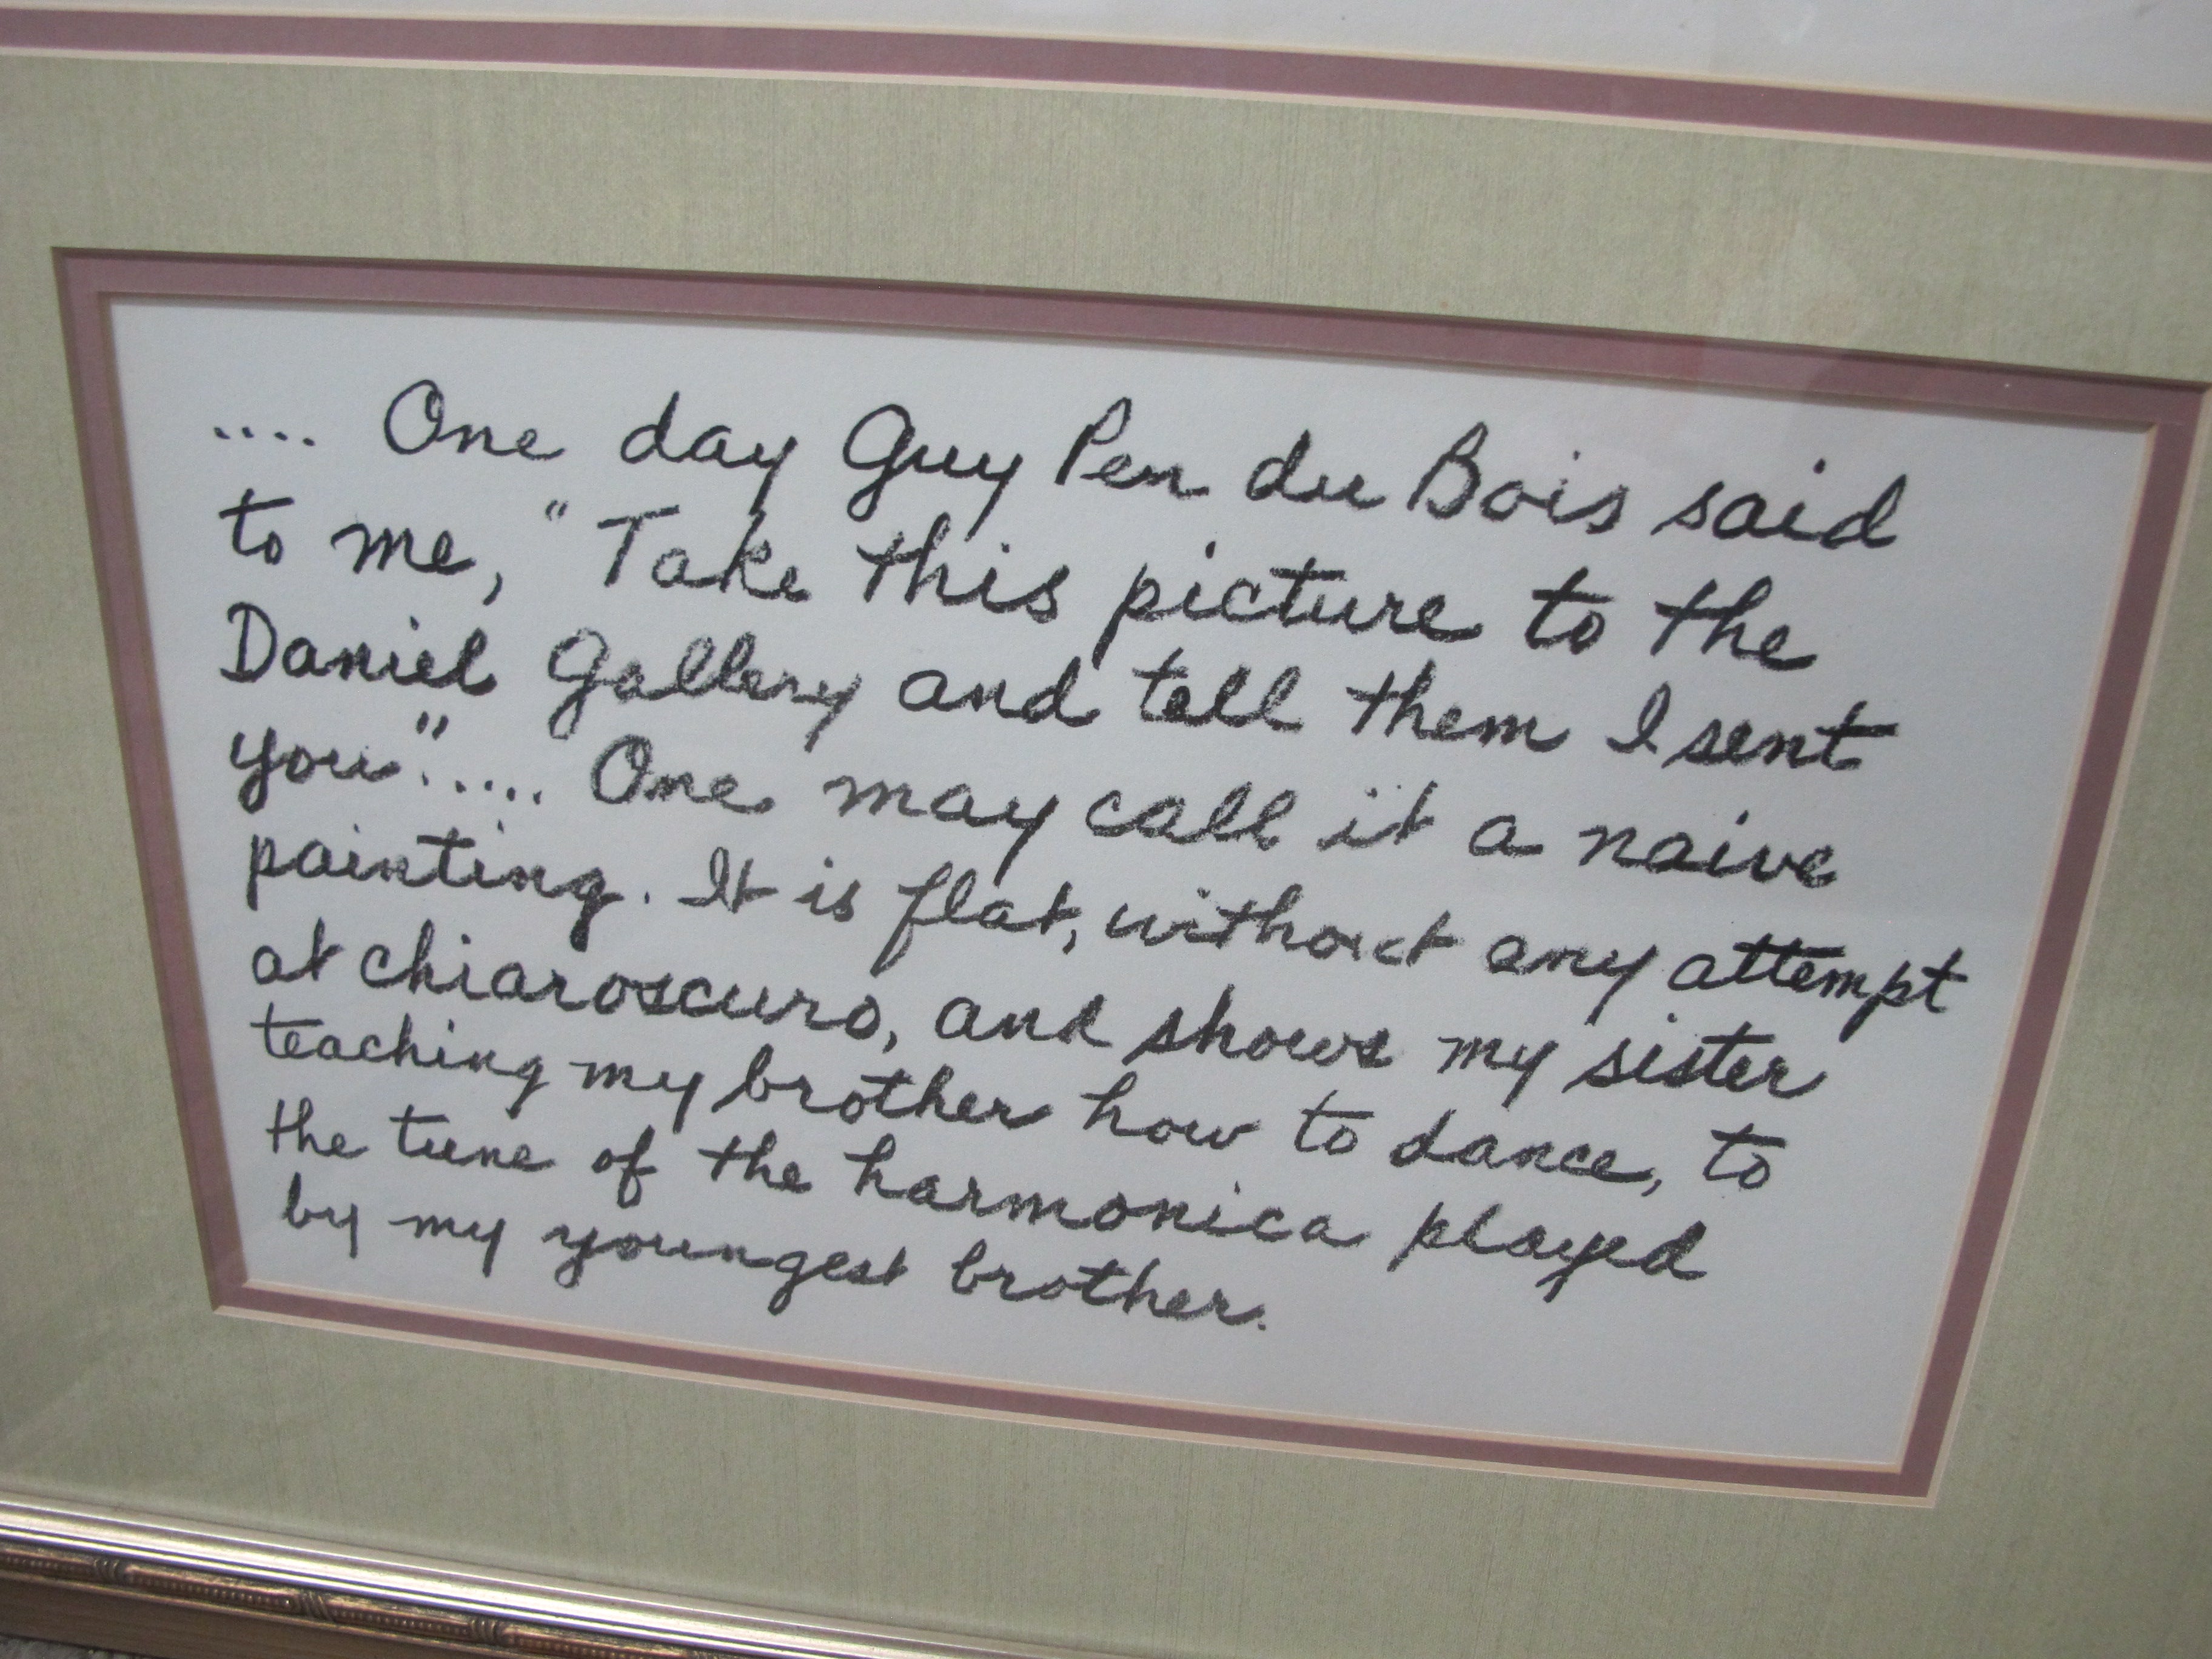 .... One day Guy Pen du Bois said
to me, "Take this picture to the
Daniel Gallery and tell them I sent
you"..... One may call it a naive
painting. It is flat, without any attempt
at chiaroscuro, and shows my sister
teaching my brother how to dance, to
the tune of the harmonica played
by my youngest brother.